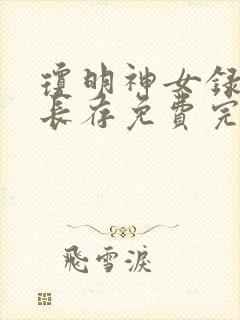 瓊明神女錄
長存免費完
飛雪淚